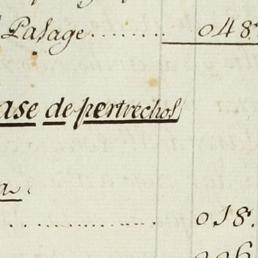 Pasage........ 048
ase de pertrechos
a
........... 018.
006